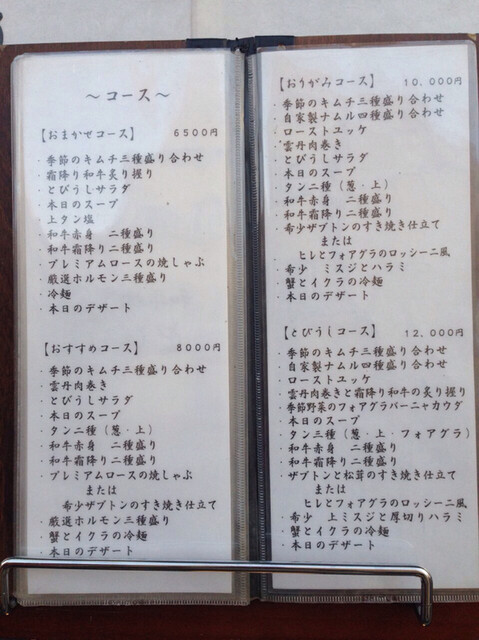 ～コース～
【おまかせコース】 6500円
・季節のキムチ三種盛り合わせ
・霜降り和牛炙り握り
・とびうしサラダ
・本日のスープ
・上タン塩
・和牛赤身 二種盛り
・和牛霜降り二種盛り
・プレミアムロースの焼しゃぶ
・厳選ホルモン三種盛り
・冷麺
・本日のデザート
【おすすめコース】 8000円
・季節のキムチ三種盛り合わせ
・雲丹肉巻き
・とびうしサラダ
・本日のスープ
・タン二種（葱・上）
・和牛赤身 二種盛り
・和牛霜降り二種盛り
・プレミアムロースの焼しゃぶ
または
希少ザブトンのすき焼き仕立て
・厳選ホルモン三種盛り
・蟹とイクラの冷麺
・本日のデザート
【おりがみコース】 10,000円
・季節のキムチ三種盛り合わせ
・自家製ナムル四種盛り合わせ
・ローストユッケ
・雲丹肉巻き
・とびうしサラダ
・本日のスープ
・タン二種（葱・上）
・和牛赤身 二種盛り
・和牛霜降り二種盛り
・希少ザブトンのすき焼き仕立て
または
ヒレとフォアグラのロッシーニ風
・希少 ミスジとハラミ
・蟹とイクラの冷麺
・本日のデザート
【とびうしコース】 12,000円
・季節のキムチ三種盛り合わせ
・自家製ナムル四種盛り合わせ
・ローストユッケ
・雲丹肉巻きと霜降り和牛の炙り握り
・季節野菜のフォアグラバーニャカウダ
・本日のスープ
・タン三種（葱・上・フォアグラ）
・和牛赤身 二種盛り
・和牛霜降り二種盛り
・ザブトンと松茸のすき焼き仕立て
または
ヒレとフォアグラのロッシーニ風
・希少 上ミスジと厚切りハラミ
・蟹とイクラの冷麺
・本日のデザート